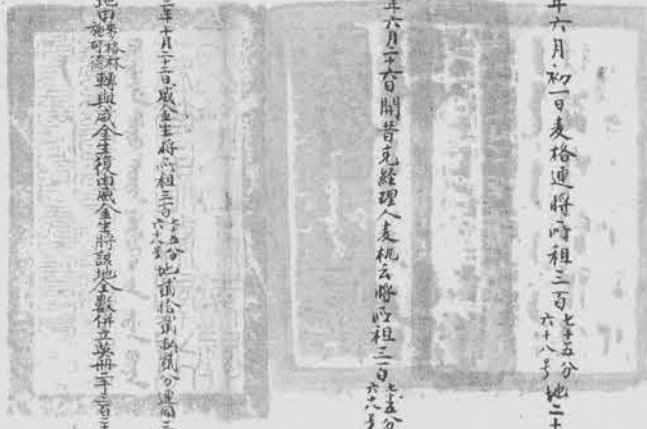 年六月初一日麦格連將所租三百七十五分六十八号地二十
年六月二十六日開昔克經理人麦机云將所租三百七十五分六十八号
三年十月二十二日威金生將所租三百七十五分六十八号地貳拾貳畝貳分連同三
地由麥格林施可德轉與威金生復由威金生將該地全數併立英冊二千三百三